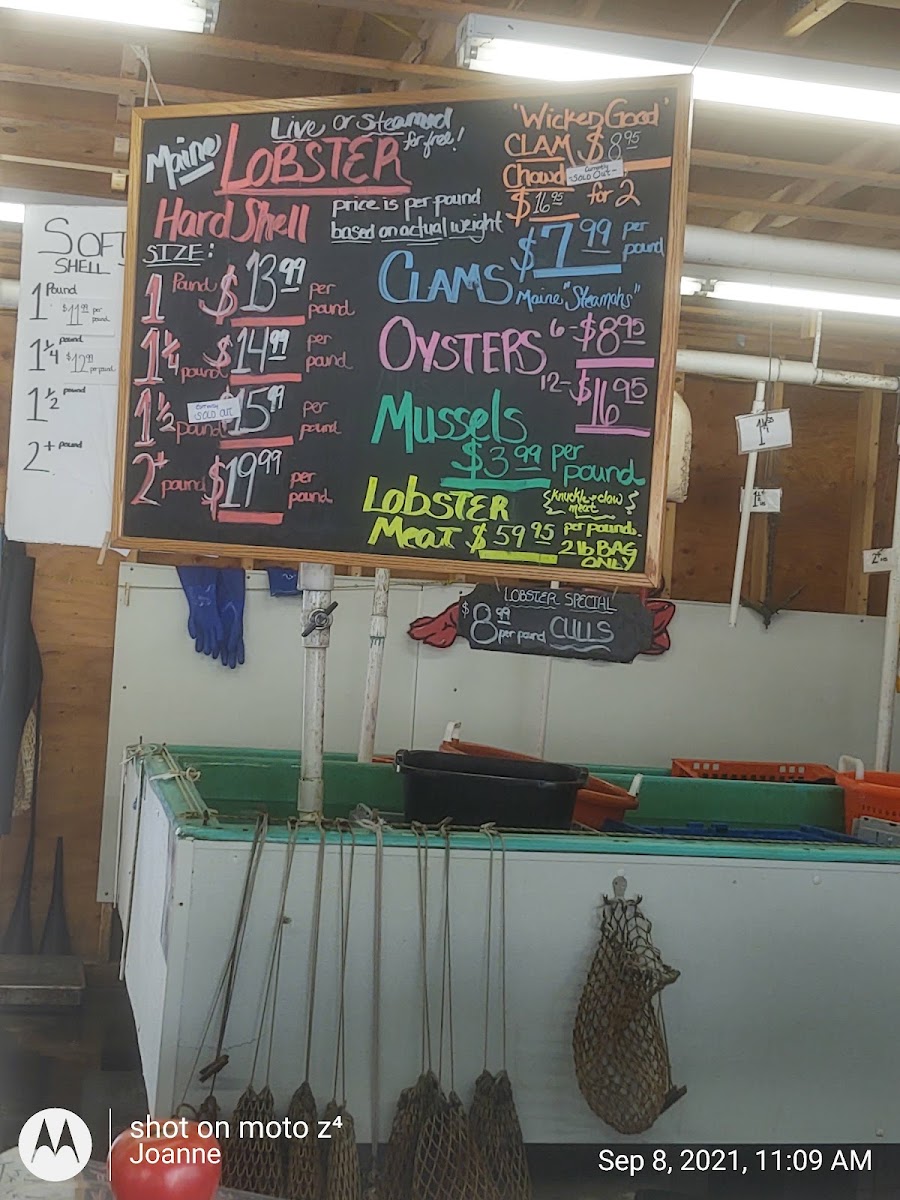 Maine
Live or Steamed
for free!
LOBSTER
Hard Shell
price is per pound
based on actual weight
SIZE:
1 Pound $13.99 per pound
1 1/4 pound $14.99 per pound
1 1/2 pound $15.99 per pound
Currently
SOLD OUT
2+ pound $19.99 per pound
"Wicked Good"
CLAM $8.95
Chowd
Currently
SOLD OUT
$16.95 for 2
$7.99 per pound
CLAMS
Maine "Steamahs"
OYSTERS
6 - $8.95
12 - $16.95
Mussels
$3.99 per pound
LOBSTER
Meat $59.95 per pound
knuckle + claw
meat
2 lb BAG
ONLY
SOFT
SHELL
1 Pound
$11.99 per pound
1 1/4 pound
$12.99 per pound
1 1/2 pound
2+ pound
LOBSTER SPECIAL
$8.99 per pound CULLS
shot on moto z⁴
Joanne
Sep 8, 2021, 11:09 AM